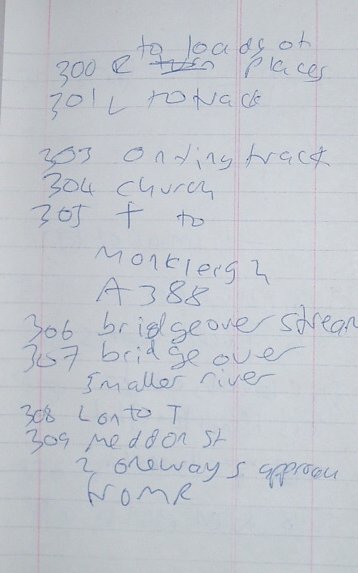 to loads of
300 R turn places
301 L to track
303 Onding track
304 church
305 T to
Monkleigh
A388
306 bridge over stream
307 bridge over
smaller river
308 L onto T
309 Meddon st
2 oneways approach
from R